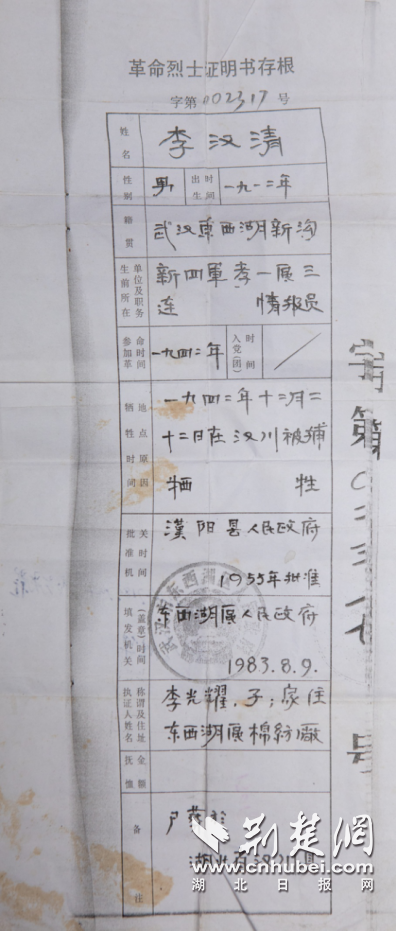 革命烈士证明书存根
字第002317号
姓名 李汉清
性别 男 出生时间 一九一二年
籍贯 武汉东西湖新沟
生前所在单位及职务 新四军孝一展三
连 情报员
参加革命时间 一九四二年 入党(团)时间 /
牺牲时间地点原因 一九四二年十二月二
十二日在汉川被捕
牺牲
批准机关时间 漢阳县人民政府
1955年批准
填发机关(盖章)时间 东西湖展人民政府
1983.8.9.
执证人姓名称谓及住址 李光耀.子;家住
东西湖展棉纺廠
抚恤金额
备注
字第 号
荆楚网
www.cnhubei.com
湖北日报网